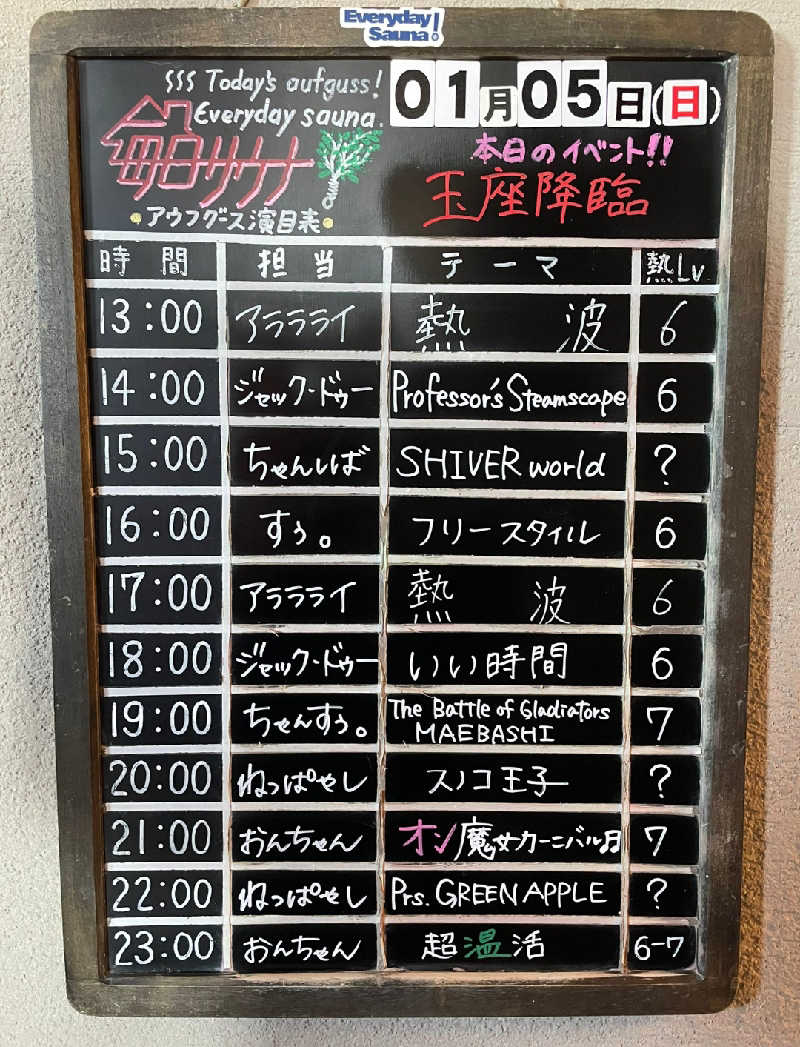 Everyday
Sauna!
SSS Today's aufguss!
Everyday sauna.
毎日サウナ
・アウフグース演目表・
01月05日(日)
本日のイベント!!
玉座降臨
時 間 担 当 テ ー マ 熱Lv
13:00 アラララライ 熱 波 6
14:00 ジャック・ドゥー Professor's Steamscape 6
15:00 ちゃんしば SHIVER world ?
16:00 すぅ。 フリースタイル 6
17:00 アラララライ 熱 波 6
18:00 ジャック・ドゥー いい時間 6
19:00 ちゃんすぅ。 The Battle of Gladiators
MAEBASHI 7
20:00 ねっぱやし スノコ王子 ?
21:00 おんちゃん オン魔女カーニバル♬ 7
22:00 ねっぱやし Prs. GREEN APPLE ?
23:00 おんちゃん 超温活 6-7